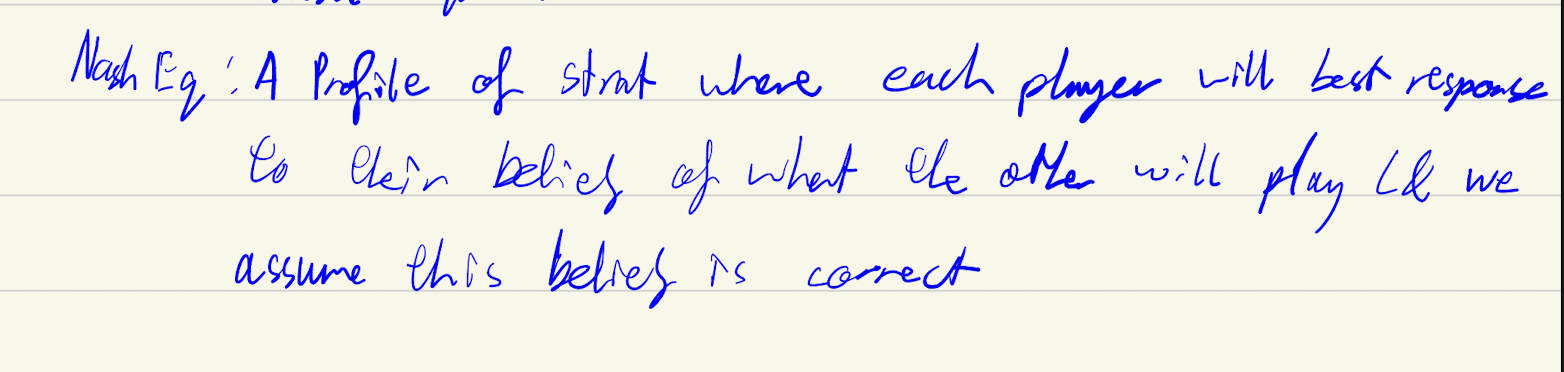 Nash Eq: A Profile of strat where each player will best response
to their belief of what the other will play (& we
assume this belief is correct